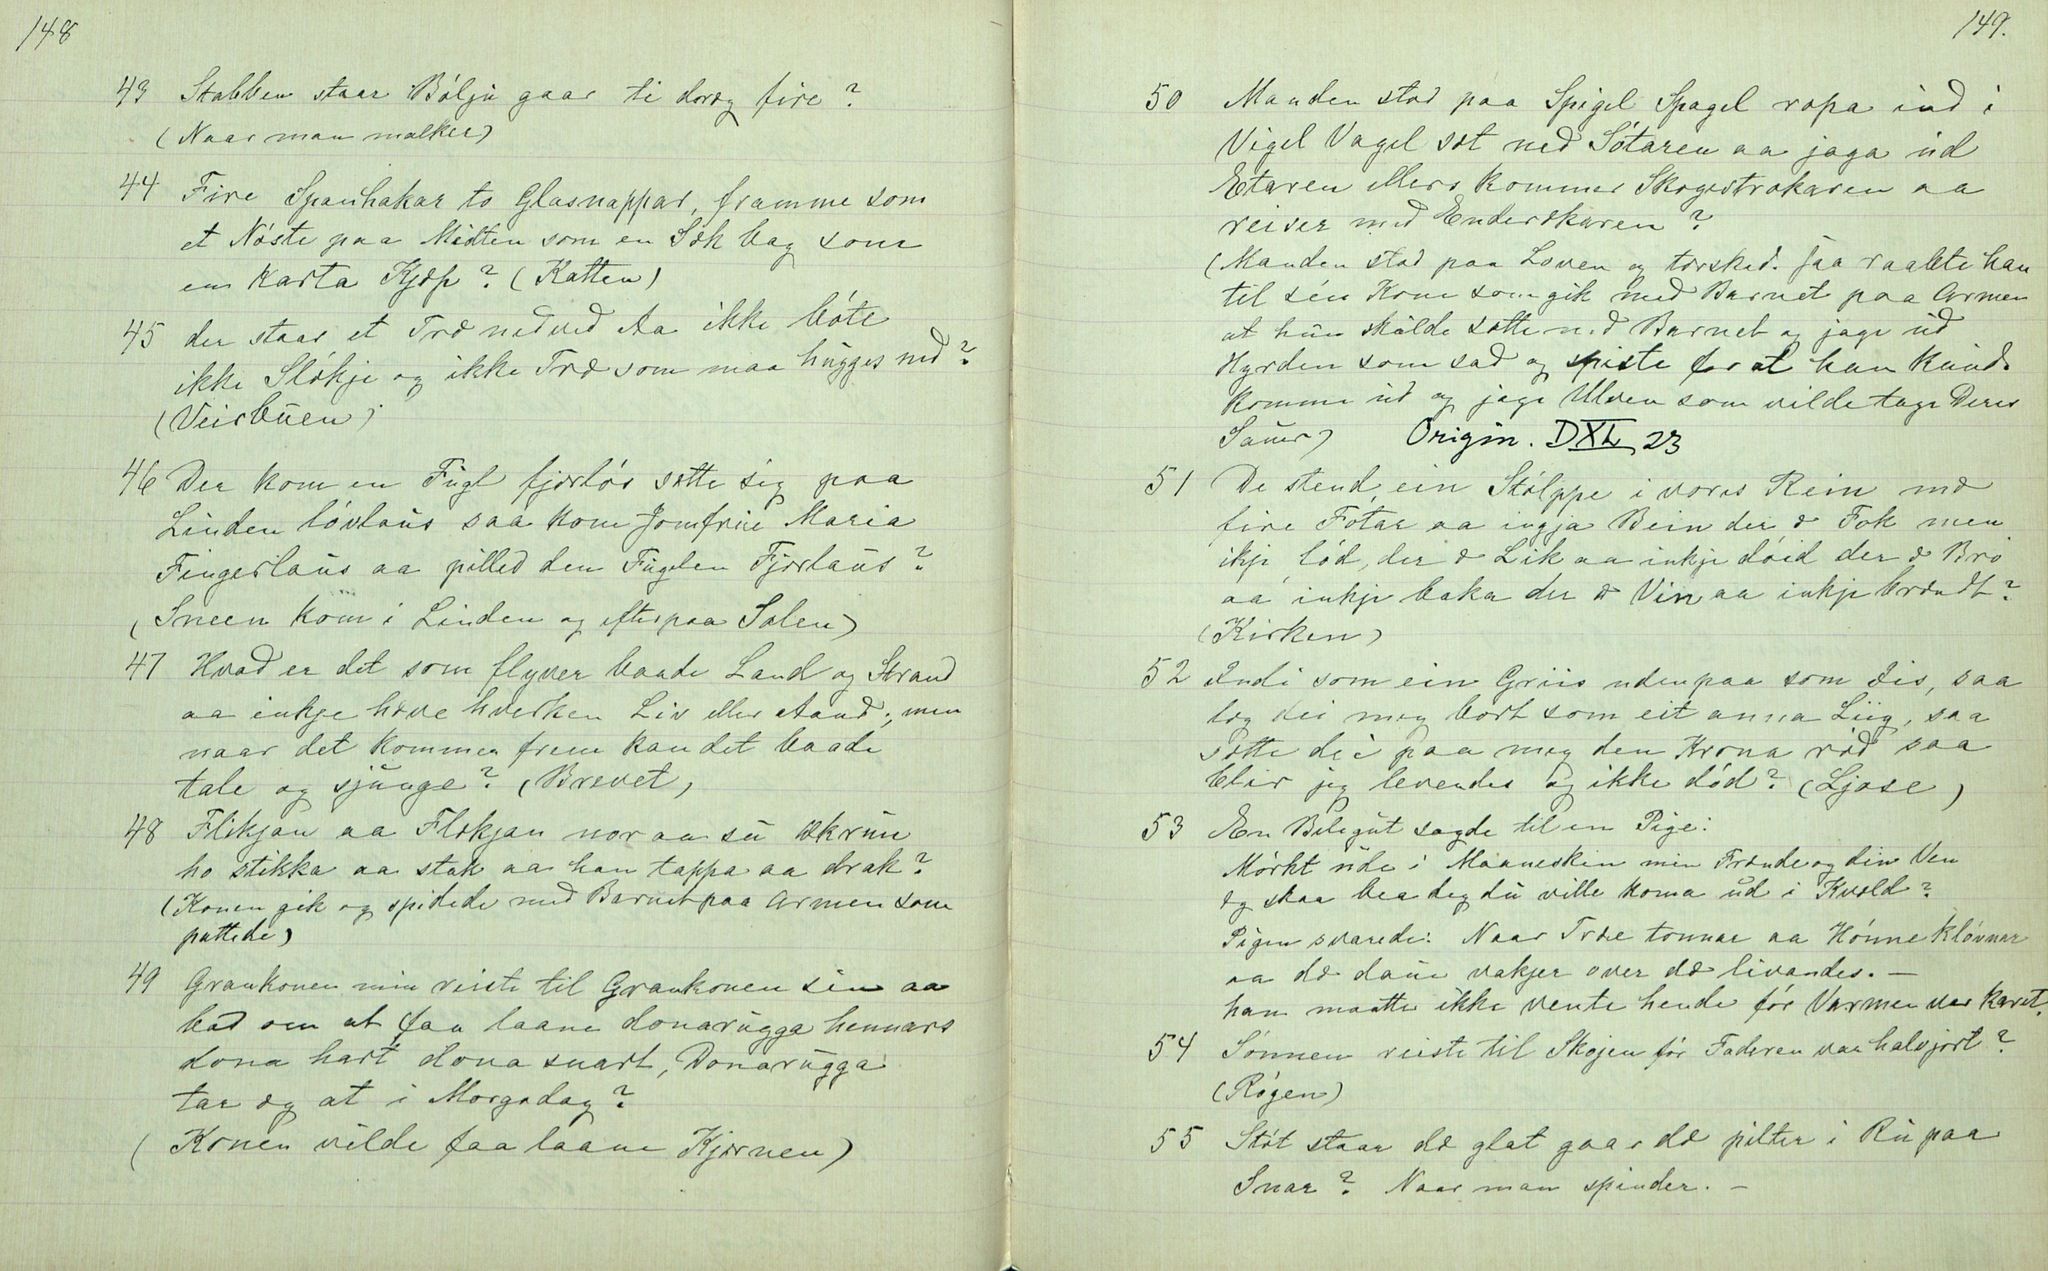 148
43 Stabben staar Bölju gaar ti dræg fire?
(Naar man malker)
44 Fire Spanhakar to Glasnappar, framme som
et Nöste paa Midten som en Sæk bag som
en Karta Kjæp? (Katten)
45 der staar et Træ nedved Aa ikke böte
ikke Slökje og ikke Træ som maa hugges ned?
(Veirbuen)
46 Der kom en Fugl fjærlös sætte sig paa
Linden lövlaus saa kom Jomfrue Maria
Fingerlaus aa pilled den Fuglen Fjærlaus?
(Sneen kom i Linden og efterpaa Solen)
47 Hvad er det som flyver baade Land og Strand
aa inkje have hverken Liv eller Aand, men
naar det kommer frem kan det baade
tale og sjunge? (Brevet)
48 Flikjan aa Flækjan nor aa su
ho stikka aa stak aa han tappa aa drak?
(Konen gik og spidede med Barnet paa Armen som
pattede)
49 Graukonen min reiste til Graukonen sin aa
bad om at faa laane donarugga hennars
dona hart dona snart, Donarugga
tar æg at i Morgodag?
(Konen vilde faa laane Kjærnen)
149.
50 Manden stod paa Spigel Spagel ropa ind i
Vigel Vagel sæt ned Sötaren aa jaga ud
Etaren ellers kommer Skogestrokaren aa
reiser med Enderskaren?
(Manden stod paa Loven og tærsked. saa raabte han
til sin Kone som gik med Barnet paa Armen
at hun skulde sætte ned Barnet og jage ud
Hyrden som sad og spiste for at han kunde
komme ud og jage Ulven som vilde tage Deres
Sauer) Origin. DXL 23
51 De stend ein Stolppe i vores Rein mæ
fire Fotar aa ingja Bein der æ Fok men
ikje löd, der æ Lik aa inkje döid der æ Brö
aa inkje baka der æ Vin aa inkje brændt?
(Kirken)
52 Indi som ein Griis udenpaa som Iis, saa
log dei meg bort som eit anna Liig, saa
sætte dei paa meg den Krona röd saa
blir jeg levendes og ikke död? (Ljose)
53 En Belegut sagde til en Pige:
Mörkt ude i Maaneskin min Frænde og din Ven
æg skaa bea deg du ville koma ud i Kvæld?
Pigen svarede: Naar Træe tonnar aa Hónne klóvnar
aa dæ daue vakjer over dæ livandes. —
han maatte ikke vente hende för Varmen var karet.
54 Sönnen reiste til Skojen för Faderen var halvjort?
(Rögen)
55 Stöt staar dæ glat gaar dæ pilter i Ru paa
Snar? Naar man spinder. —